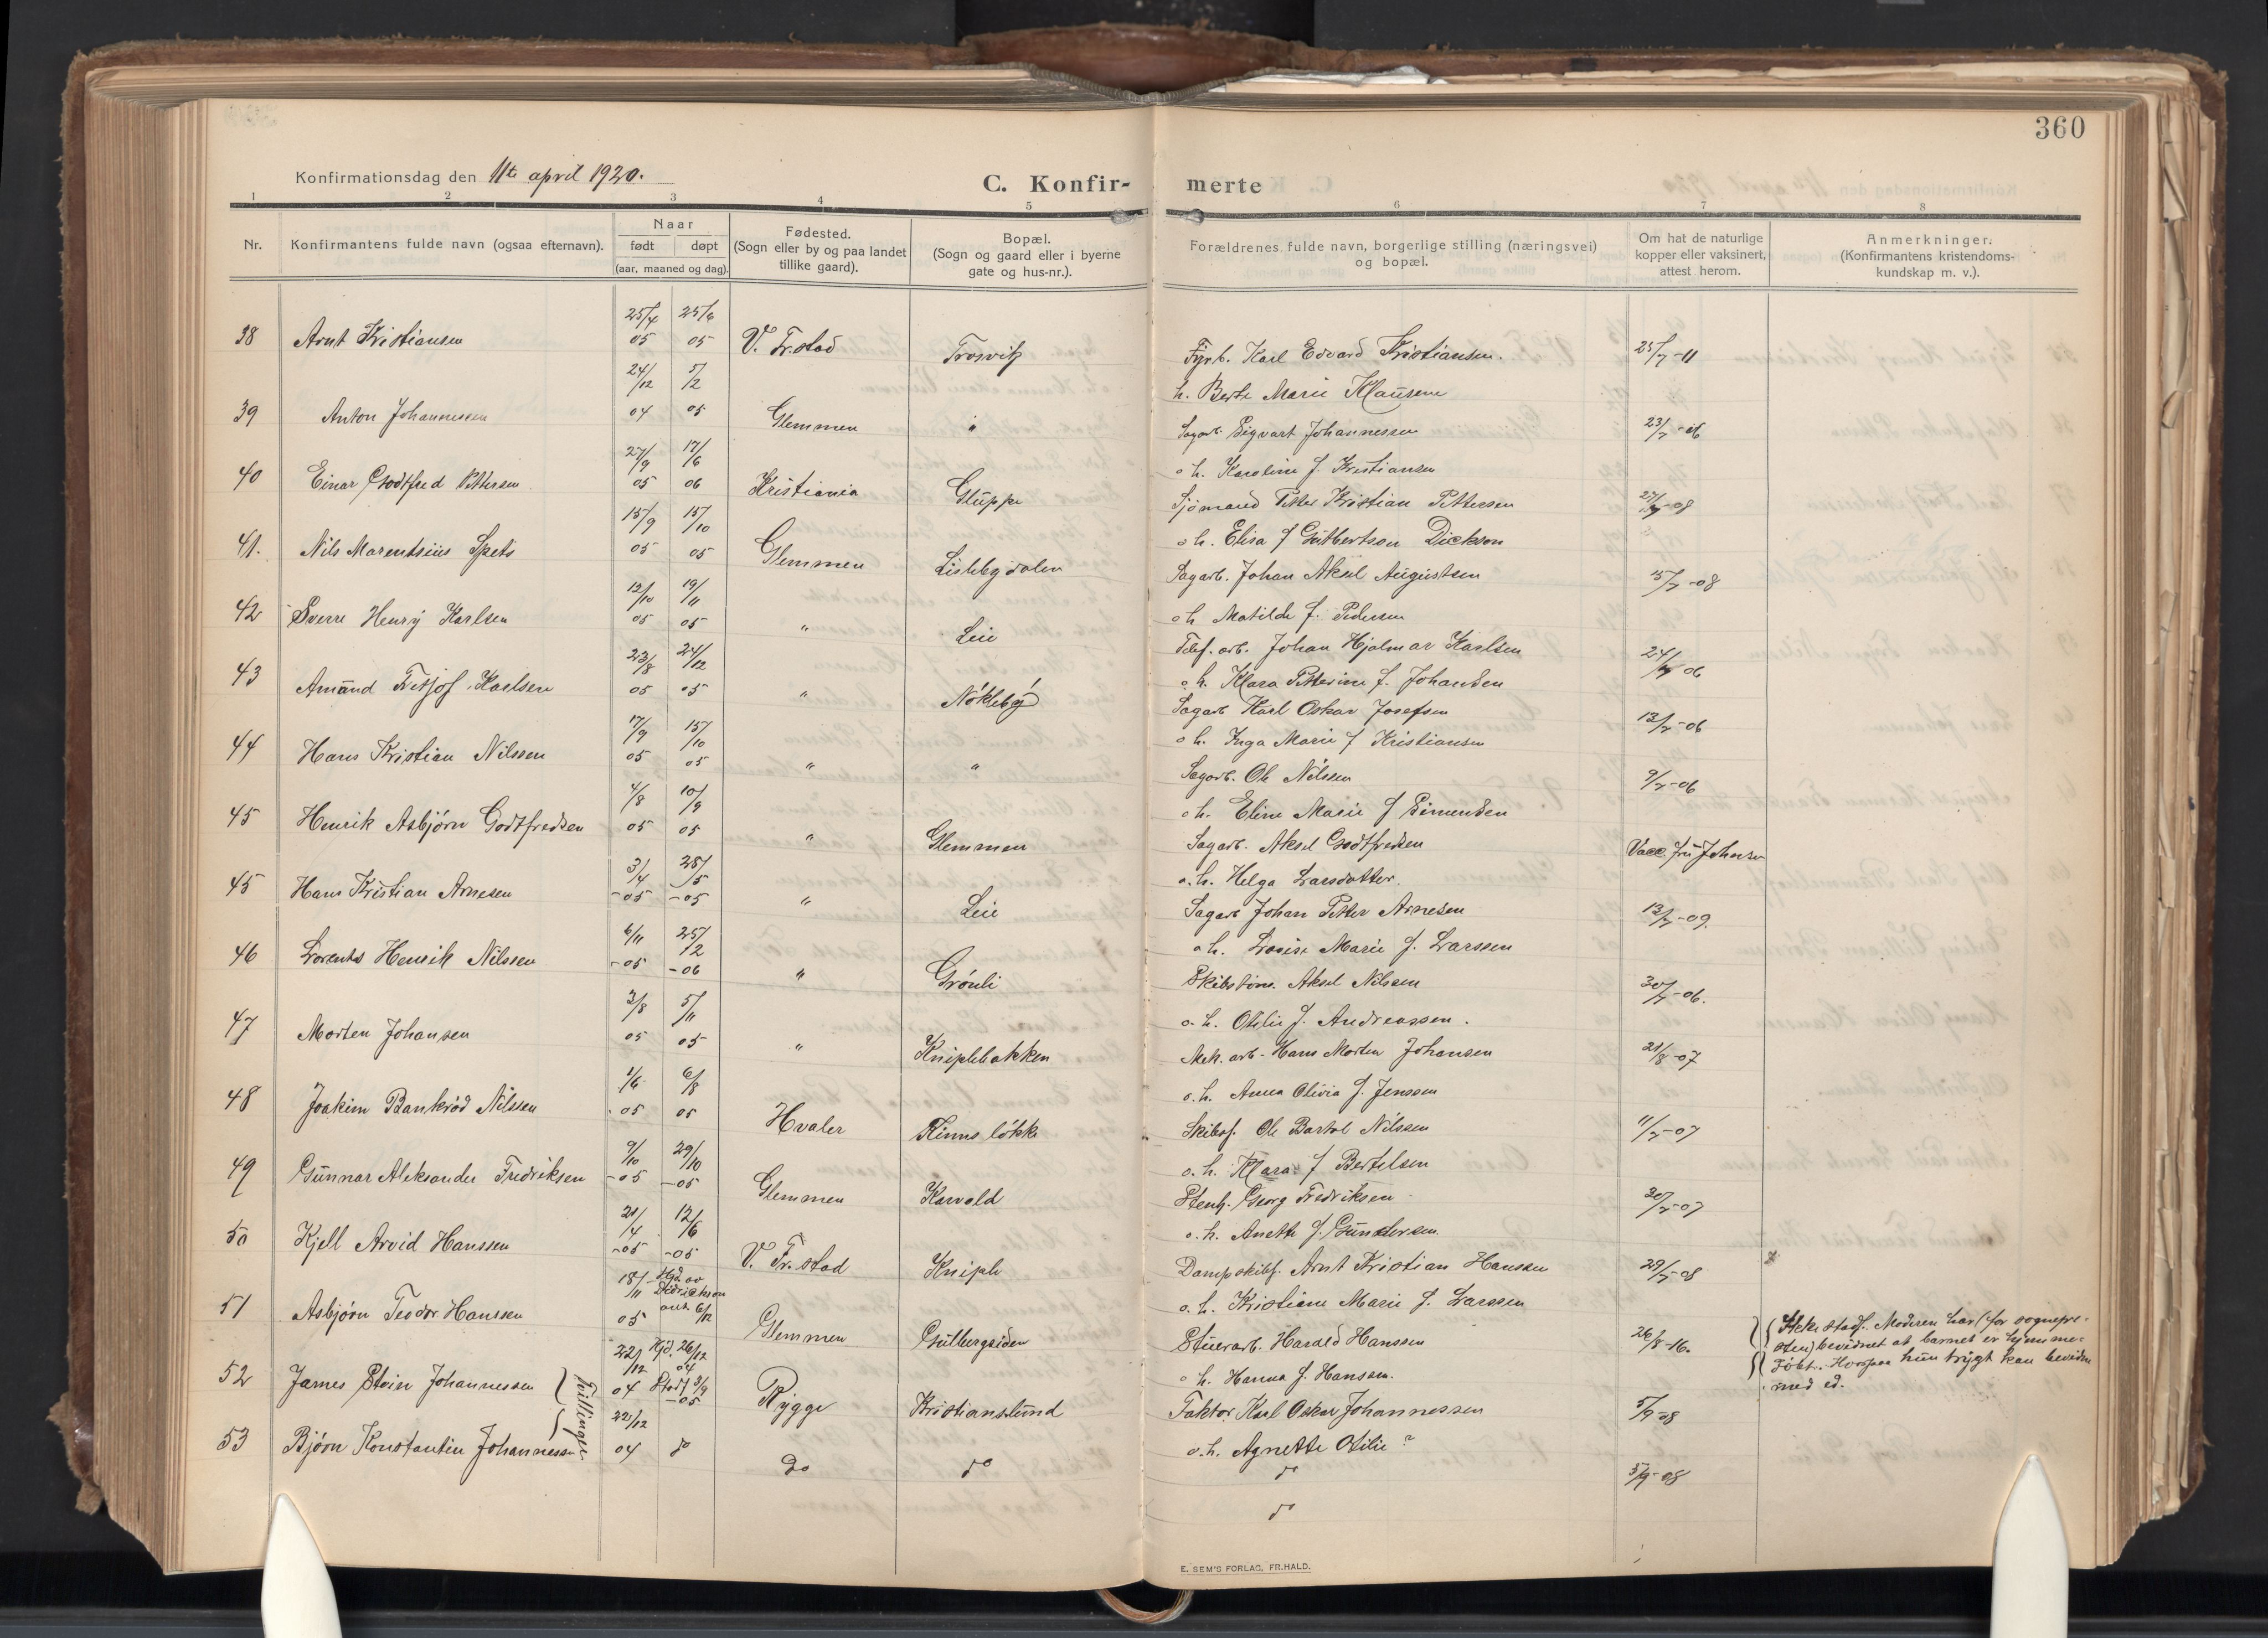 360
Konfirmationsdag den 11te april 1920.
C. Konfirmerte
1 2 3 4 5 6 7 8
Nr.
Konfirmantens fulde navn (ogsaa efternavn).
Naar
født døpt
(aar, maaned og dag).
Fødested.
(Sogn eller by og paa landet
tillike gaard).
Bopæl.
(Sogn og gaard eller i byerne
gate og hus-nr.).
Forældrenes fulde navn, borgerlige stilling (næringsvei)
og bopæl.
Om hat de naturlige
kopper eller vaksinert,
attest herom.
Anmerkninger.
(Konfirmantens kristendoms-
kundskap m. v.).
38 Arnt Kristiansen 25/4 05 25/6 05 V. Fr.stad Trosvik Fyrb. Karl Edvard Kristiansen. 25/7-11
h. Berte Marie Klausene
39 Anton Johannessen 24/12 04 5/2 05 Glemmen " Sagarb. Sigvart Johannessen 23/7-06
o h. Karoline f. Kristiansen
40 Einar Godtfred Pettersen 27/9 05 17/6 06 Kristiania Gluppe Sjömand Petter Kristian Pettersen
o h. Elisa f Gutbertson Dickson
41. Nils Marentsius Spets 15/9 05 15/10 05 Glemmen Lislebydalen Sagarb. Johan Aksel Augustsen 15/7-08
o h Matilde f. Pedersen
42 Sverre Henry Karlsen 12/10 05 19/11 05 " Leie Telef. arb. Johan Hjalmar Karlsen
o. h. Klara Petterine f. Johansen
43 Amand Fritjof Karlsen 23/8 05 24/12 05 " Nökleby Sagarb Karl Oskar Josefsen 13/7-06
o h. Inga Marie f Kristiansen
44 Hans Kristian Nilssen 17/9 05 15/10 05 " " Sagarb. Ole Nilssen 9/7-06
o h. Eline Marie f Simensen
45 Henrik Asbjörn Godtfredsen 4/8 05 10/9 05 " Glemmen Sagarb. Aksel Godtfredsen Vacc. fru Johansen
o. h. Helga Larsdatter.
45 Hans Kristian Arnesen 3/4 -05 28/5 -05 " Leie Sagarb Johan Petter Arnesen 13/7-09.
o h. Lovise Marie f. Larssen
46 Lorents Henrik Nilssen 6/11 -05 25/2 -06 " Grönli Skibstöm. Aksel Nilssen 30/7-06.
o. h. Otilie f. Andreassen.
47 Morten Johansen 3/8 05 5/11 05 " Kniplebakken Mek. arb. Hans Morten Johansen 21/8-07
o. h. Anna Olivia f. Jenssen
48 Joakim Bankröd Nilssen 1/6 05 6/8 05 Hvaler Rinnslökke Skibsf. Ole Bartol Nilssen 11/7-07
o. h. Klara f Bertelsen
49 Gunnar Aleksander Fredriksen 9/10 -05 29/10 -05 Glemmen Karvold Stenh. Georg Fredriksen 20/7-07
o. h. Anette f. Gundersen.
50 Kjell Arvid Hanssen 21/4 -05 12/6 -05 V. Fr. stad Kniple Dampskibsf. Arnt Kristian Hanssen 29/7-08
o. h. Kristiane Marie f. Larssen
51 Asbjörn Teodor Hanssen 18/11 05 Hjd. av Didrickson 6/12 Glemmen Gulbergsiden Stuerarb. Harald Hanssen 26/8-16.
o h. Hanna f. Hansen.
Ikke stadf. Moderen har (for sognepre-
sten) bevidnet at barnet er hjemme-
döbt. Hvorpaa hun trygt kan bevidne
med ed.
52 James Stein Johannessen 22/12 04 Hjd. 26/12 04 Stadf 3/9 -05 Rygge Kristianslund Faktor Karl Oskar Johannessen 5/9-08
o. h. Agnette Otilie ?
Tvillinger
53 Björn Konstantin Johannessen 22/12 04 do Do do do 5/9-08
do
E. SEM'S FORLAG, FR.HALD.